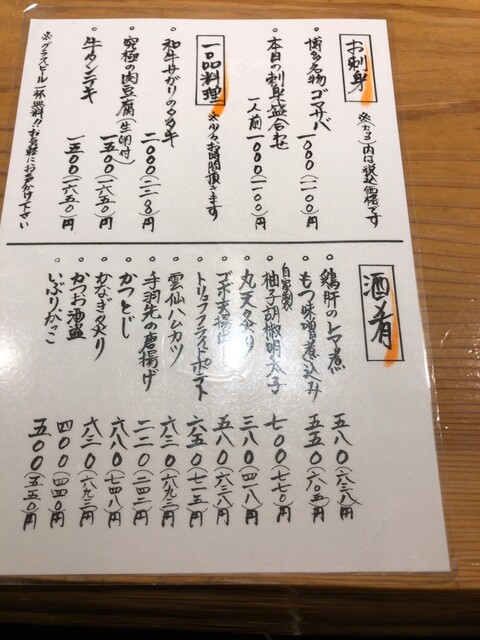 お刺身
※(カッコ)内は税込価格です
。博多名物ゴマサバ
一〇〇〇(一一〇〇)円
。本日の刺身盛合わせ
一人前一〇〇〇(一一〇〇)円
一品料理
※少々お時間頂きます
。和牛サガリのタタキ
二〇〇〇(二二〇〇)円
。究極の肉豆腐(生卵付)
一五〇〇(一六五〇)円
。牛タンニテキ
一五〇〇(一六五〇)円
※グラスビール一杯無料!!お気軽にお声かけ下さい
酒肴
。鶏肝のトマト煮
五八〇(六三八)円
。もつ味噌煮込み
五五〇(六〇五)円
。自家製柚子胡椒明太子
七〇〇(七七〇)円
。丸天炙り
三八〇(四一八)円
。ゴボ天揚げ
五八〇(六三八)円
。トリュフフライドポテト
六五〇(七一五)円
。雲仙ハムカツ
六三〇(六九三)円
。手羽先の唐揚げ
二二〇(二四二)円
。かつとじ
六八〇(七四八)円
。かなぎ炙り
六三〇(六九三)円
。かつお酒盗
四〇〇(四四〇)円
。いぶりがっこ
五〇〇(五五〇)円